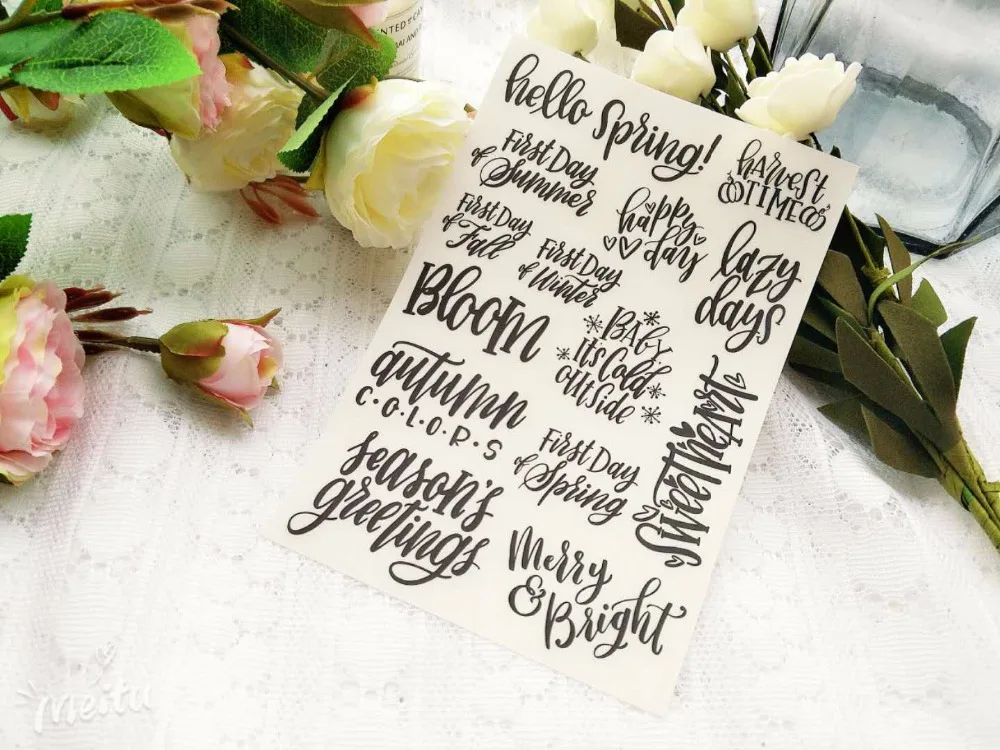 hello Spring!
First Day
of Summer
harvest
TIME
happy
day
First Day
of Fall
First Day
of Winter
lazy
days
Bloom
BABY
it's Cold
outside
autumn
C·O·L·O·R·S
SWEETHEART
First Day
of Spring
season's
greetings
Merry
& Bright
meitu